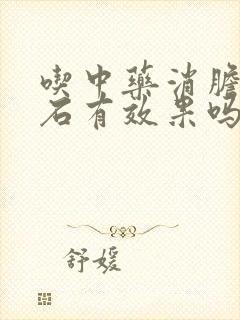 喫中藥消膽
石有效果吗
舒媛